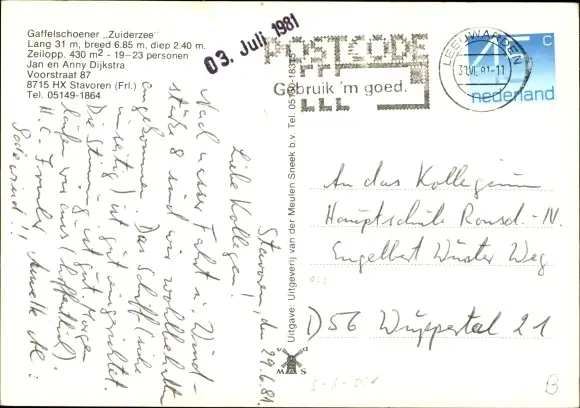 Gaffelschoener „Zuiderzee"
Lang 31 m, breed 6.85 m, diep 2.40 m.
Zeilopp. 430 m² - 19-23 personen
Jan en Anny Dijkstra
Voorstraat 87
8715 HX Stavoren (Frl.)
Tel. 05149-1864
03. Juli 1981
POSTCODE
Gebruik 'm goed.
LEEUWARDEN
C
nederland
Stavoren, den 29.6.81.
Liebe Kollegen!
Nach unserer Fahrt i. Wind-
stärke 8 sind wir wohlbehalten
angekommen. Das Schiff (siehe
) ist gut eingerichtet.
Die Stimmung ist gut. Morgen
laufen wir aus (hoffentlich).
H.C. 
Uitgave: Uitgeverij van der Meulen Sneek b.v. Tel. 05150-
M S
An das Kollegium
Hauptschule Ronsd.-N.
Engelbert Wüster Weg
D 56 Wuppertal 21
B